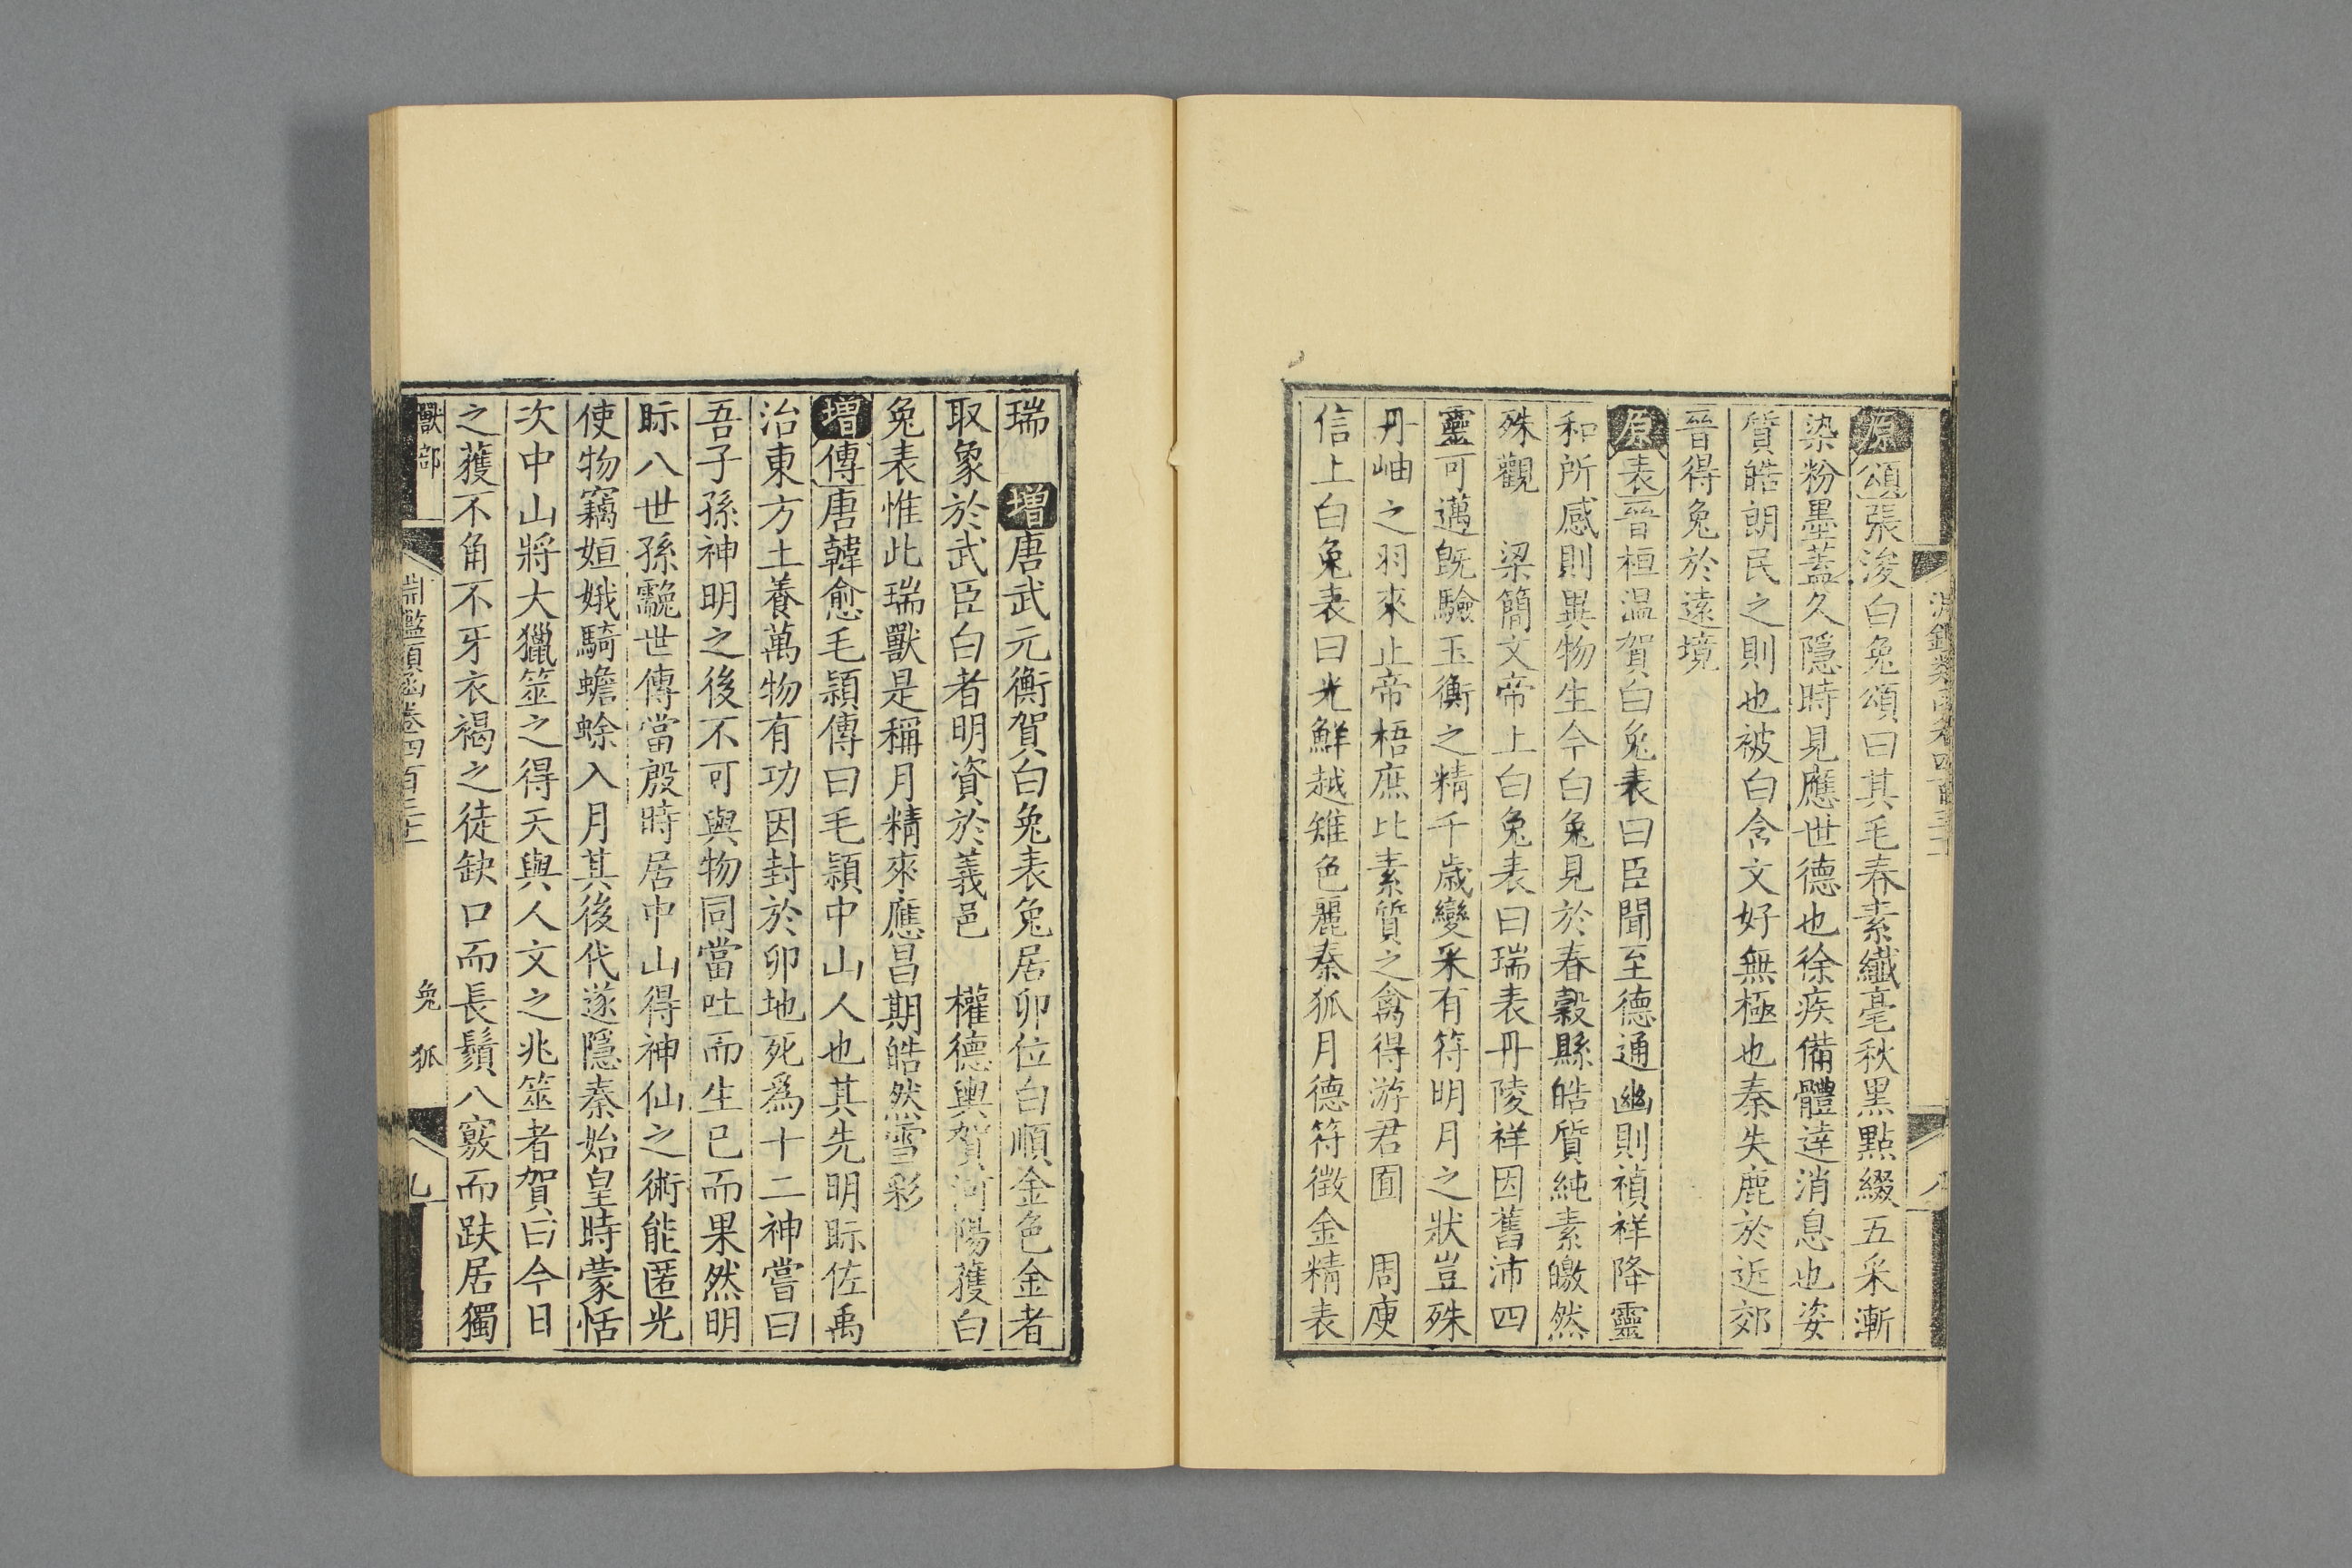 原頌張浚白兔頌曰其毛春素纎毫秋黒點綴五采漸
染粉墨蓋久隱時見應世德也徐疾備體達消息也姿
質皓朗民之則也被白含文好無極也秦失鹿於近郊
晉得兔於遠境
原表晉桓温賀白兔表曰臣聞至德通幽則禎祥降靈
和所感則異物生今白兔見於春穀縣皓質純素皦然
殊觀　梁簡文帝上白兔表曰瑞表丹陵祥因舊沛四
靈可邁旣驗玉衡之精千歳變采有符明月之狀豈殊
丹岫之羽來止帝梧庶比素質之禽得游君囿　周庾
信上白兔表曰光鮮越雉色麗秦狐月德符徵金精表
瑞　增唐武元衡賀白兔表兔居卯位白順金色金者
取象於武臣白者明資於義邑　權德輿賀河陽獲白
兔表惟此瑞獸是稱月精來應昌期皓然雪彩
增傳唐韓愈毛穎傳曰毛穎中山人也其先明眎佐禹
治東方土養萬物有功因封於卯地死爲十二神嘗曰
吾子孫神明之後不可與物同當吐而生已而果然明
眎八世孫䨲世傳當殷時居中山得神仙之術能匿光
使物竊姮娥騎蟾蜍入月其後代遂隱秦始皇時蒙恬
次中山將大獵筮之得天與人文之兆筮者賀曰今日
之獲不角不牙衣褐之徒缺口而長鬚八竅而趺居獨
獸部
淵鑑類函卷四百三十一
兔　狐
九